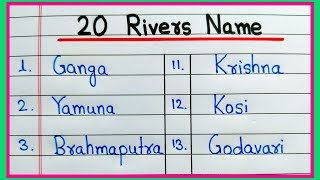 20 Rivers Name
1. Ganga 11. Krishna
2. Yamuna 12. Kosi
3. Brahmaputra 13. Godavari